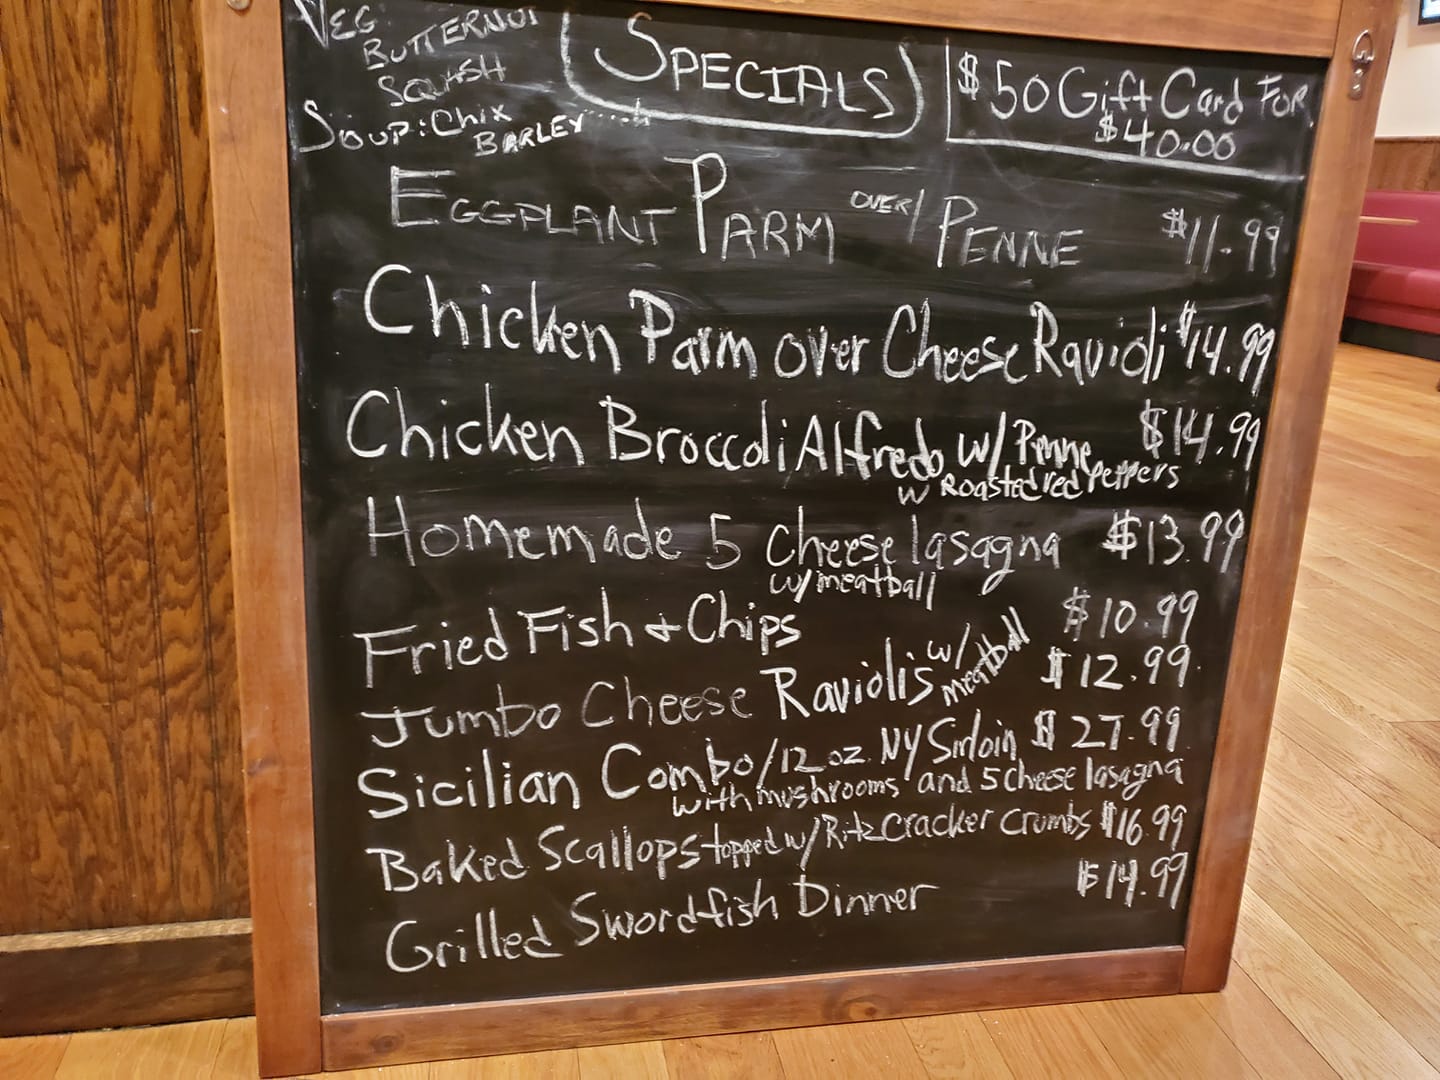 Veg:
Butternut
Squash
Soup: Chix
Barley
Specials
$50 Gift Card For
$40.00
Eggplant Parm over/ Penne $11.99
Chicken Parm over Cheese Ravioli $14.99
Chicken Broccoli Alfredo w/ Penne $14.99
w Roasted red peppers
Homemade 5 Cheese lasagna $13.99
w/meatball
Fried Fish + Chips $10.99
Jumbo Cheese Raviolis w/ meatball $12.99
Sicilian Combo/12 oz. NY Sirloin $27.99
with mushrooms and 5 cheese lasagna
Baked Scallops topped w/ Ritz Cracker Crumbs $16.99
Grilled Swordfish Dinner $14.99